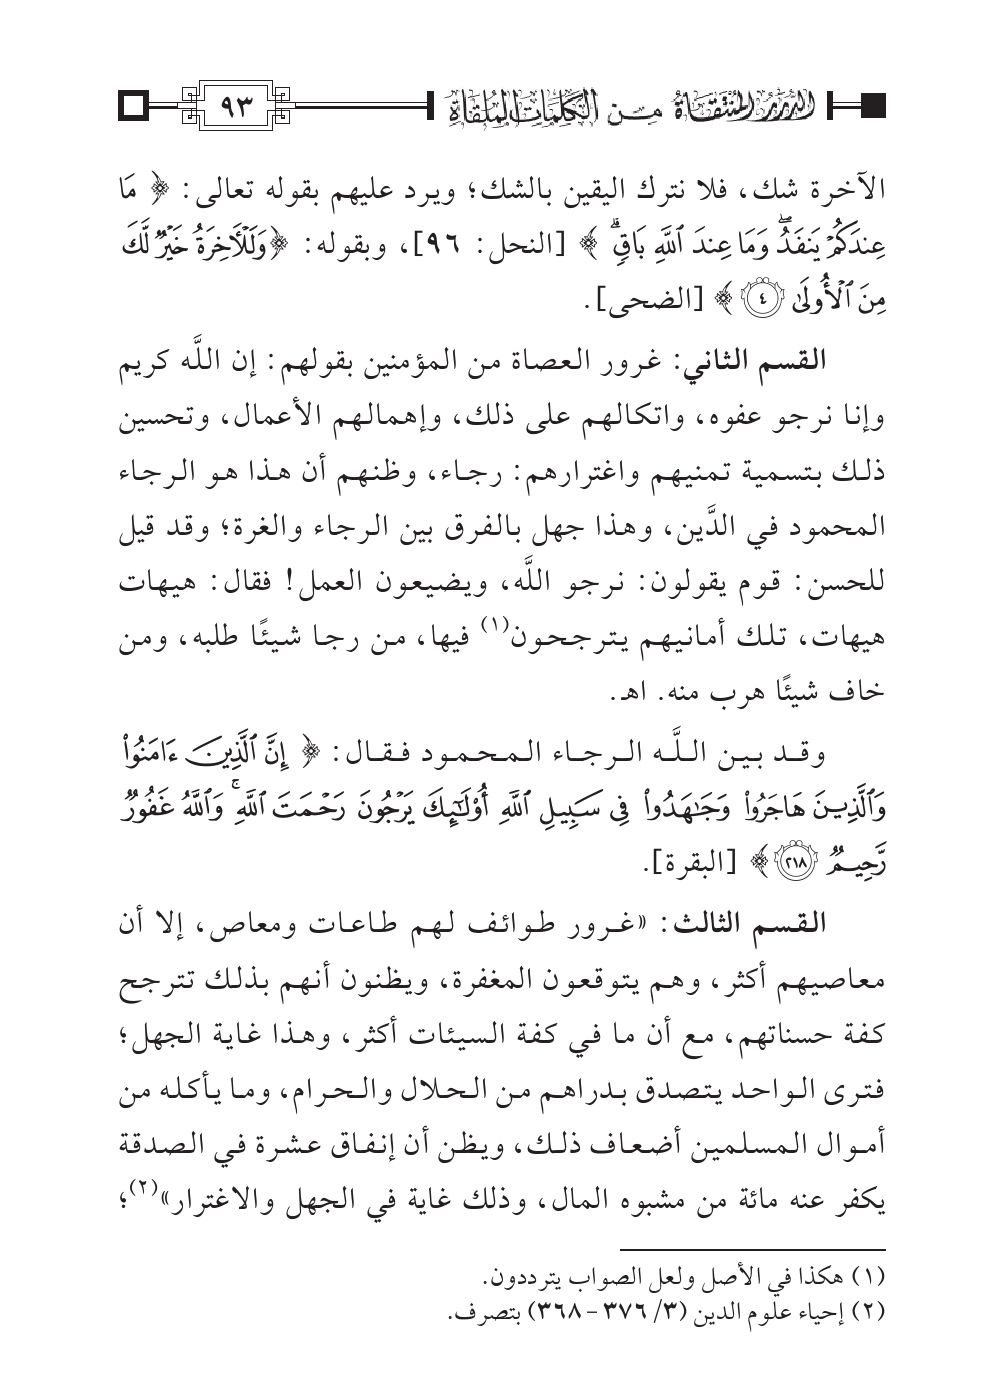 الدرر المنتقاة من الكلمات الملقاة ٩٣
الآخرة شك، فلا نترك اليقين بالشك؛ ويرد عليهم بقوله تعالى: ﴿ مَا
عِندَكُمْ يَنفَدُ ۖ وَمَا عِندَ ٱللَّهِ بَاقٍ ۗ ﴾ [النحل: ٩٦]، وبقوله: ﴿وَلَلْأَخِرَةُ خَيْرٌ لَّكَ
مِنَ ٱلْأُولَىٰ ٤ ﴾ [الضحى].
القسم الثاني: غرور العصاة من المؤمنين بقولهم: إن اللَّه كريم
وإنا نرجو عفوه، واتكالهم على ذلك، وإهمالهم الأعمال، وتحسين
ذلك بتسمية تمنيهم واغترارهم: رجاء، وظنهم أن هذا هو الرجاء
المحمود في الدَّين، وهذا جهل بالفرق بين الرجاء والغرة؛ وقد قيل
للحسن: قوم يقولون: نرجو اللَّه، ويضيعون العمل! فقال: هيهات
هيهات، تلك أمانيهم يترجحون(١) فيها، من رجا شيئًا طلبه، ومن
خاف شيئًا هرب منه. اهـ.
وقد بين اللَّه الرجاء المحمود فقال: ﴿ إِنَّ ٱلَّذِينَ ءَامَنُوا۟
وَٱلَّذِينَ هَاجَرُوا۟ وَجَٰهَدُوا۟ فِى سَبِيلِ ٱللَّهِ أُو۟لَٰٓئِكَ يَرْجُونَ رَحْمَتَ ٱللَّهِ ۚ وَٱللَّهُ غَفُورٌ
رَّحِيمٌ ٢١٨ ﴾ [البقرة].
القسم الثالث: «غرور طوائف لهم طاعات ومعاص، إلا أن
معاصيهم أكثر، وهم يتوقعون المغفرة، ويظنون أنهم بذلك تترجح
كفة حسناتهم، مع أن ما في كفة السيئات أكثر، وهذا غاية الجهل؛
فترى الواحد يتصدق بدراهم من الحلال والحرام، وما يأكله من
أموال المسلمين أضعاف ذلك، ويظن أن إنفاق عشرة في الصدقة
يكفر عنه مائة من مشبوه المال، وذلك غاية في الجهل والاغترار»(٢)؛
(١) هكذا في الأصل ولعل الصواب يترددون.
(٢) إحياء علوم الدين (٣/ ٣٧٦ - ٣٦٨) بتصرف.